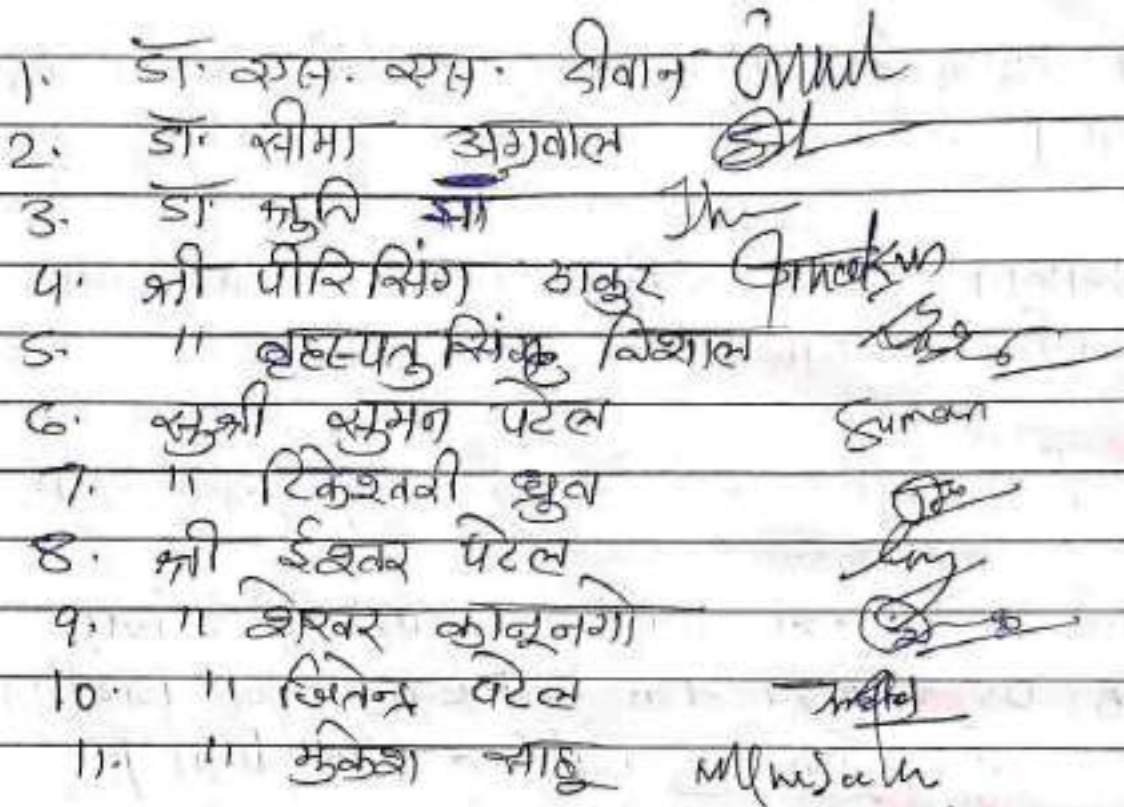 1. डॉ. एस. एस. दीवान
2. डॉ. सीमा अग्रवाल
3. डॉ श्रुति झा
4. श्री पीरि सिंग ठाकुर
5. " वृहस्पतु सिंह विशाल
6. सुश्री सुमन पटेल Suman
7. " टिकेश्वरी ध्रुव
8. श्री ईश्वर पटेल
9. " शेखर कानूनगो
10. " जितेन्द्र पटेल
11. " मुकेश साहू